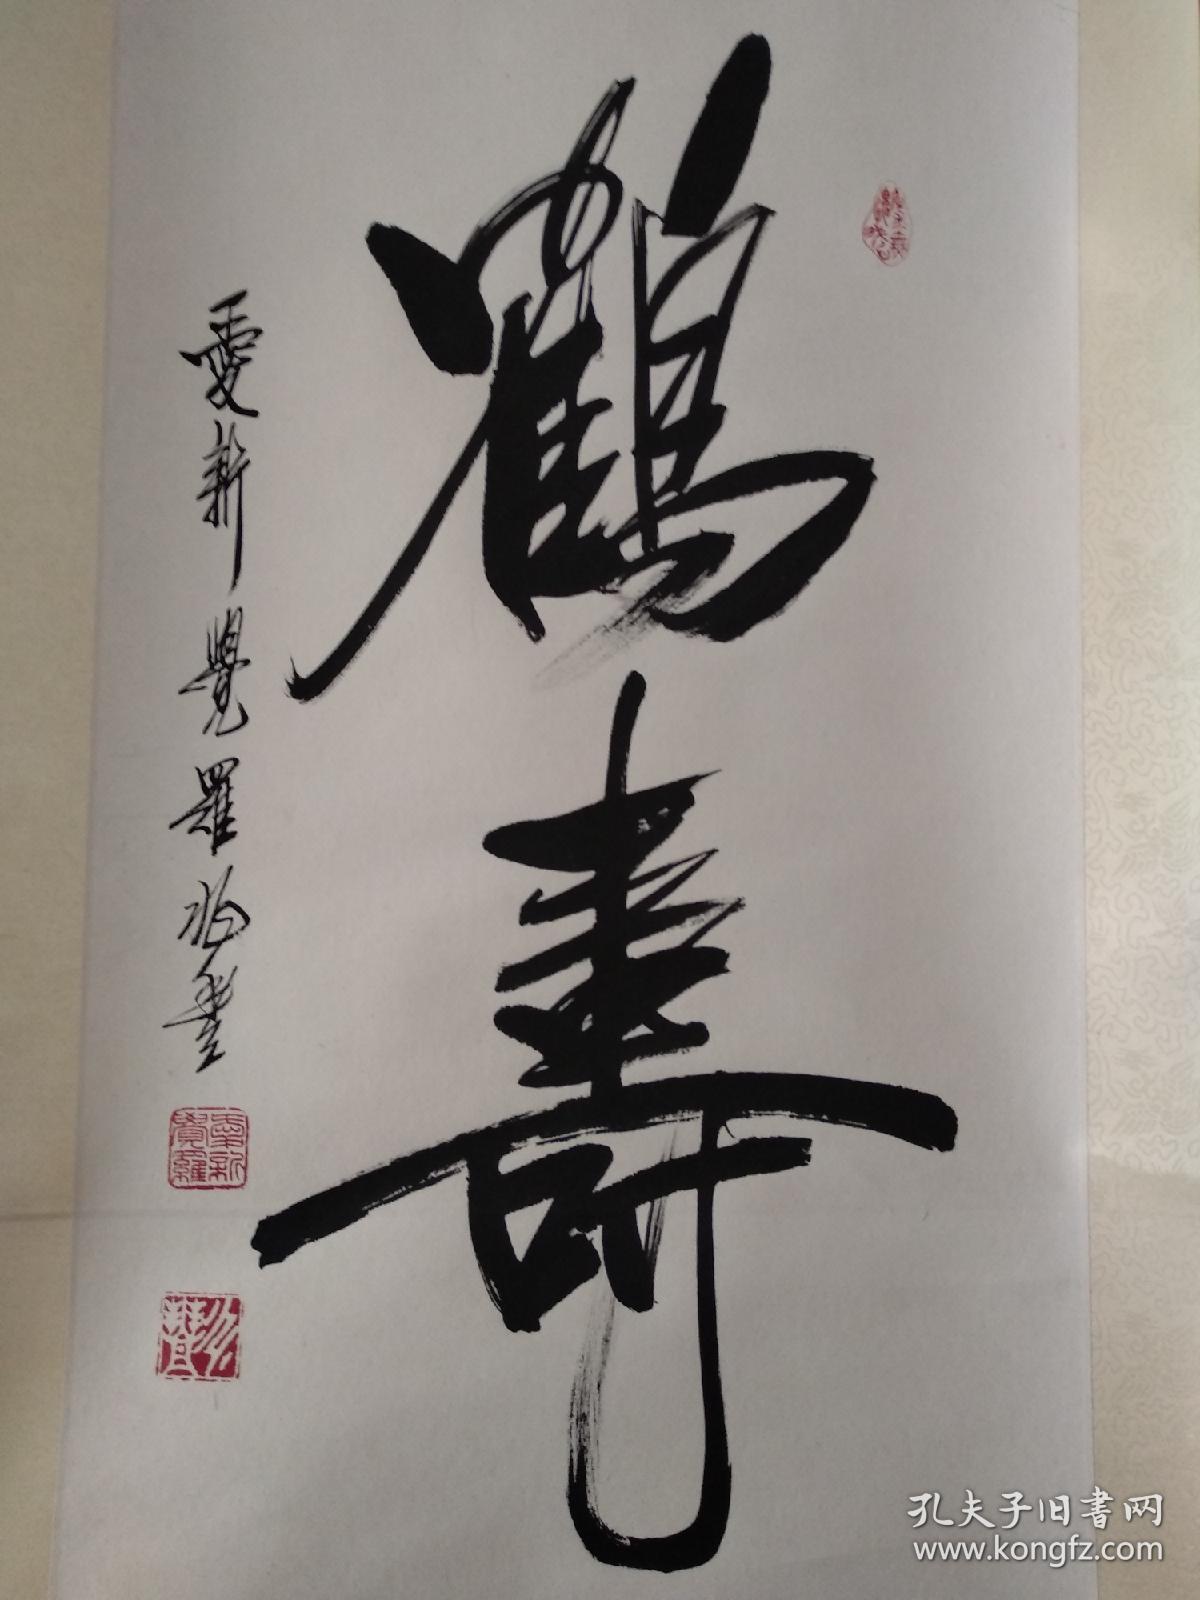 鶴壽
愛新覺羅
愛新覺羅
孔夫子旧书网
www.kongfz.com